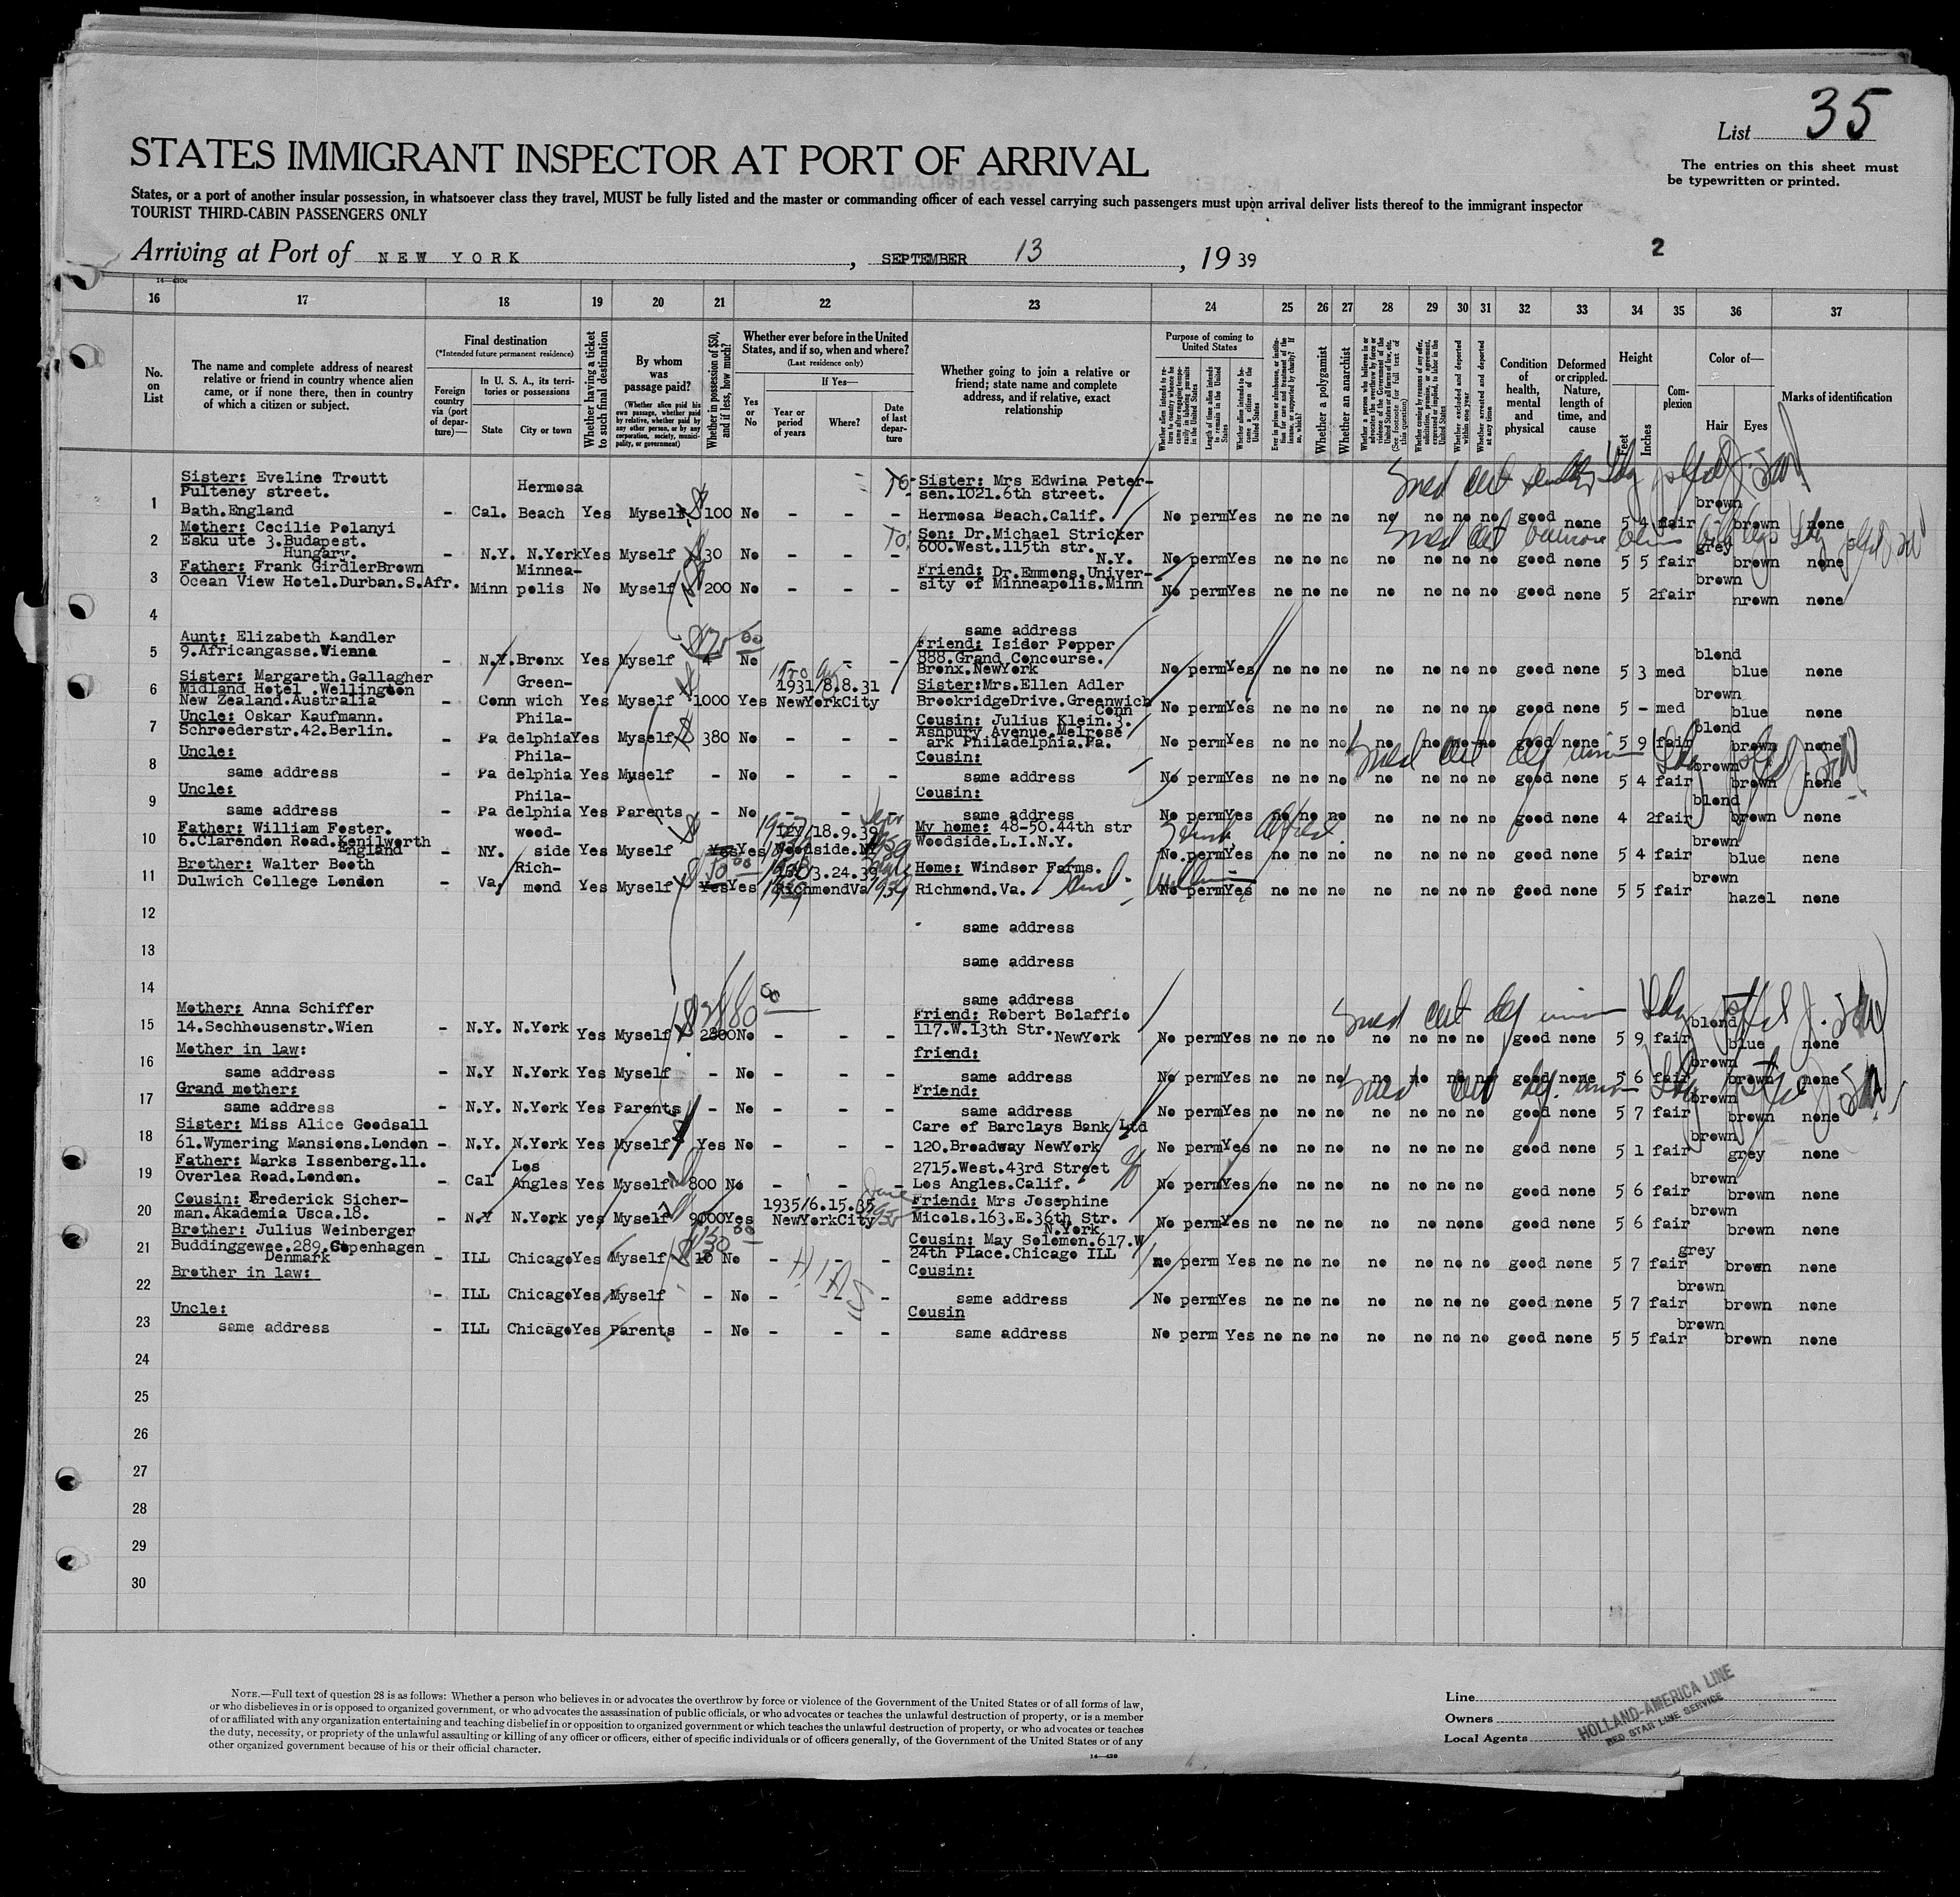 List 35
STATES IMMIGRANT INSPECTOR AT PORT OF ARRIVAL
The entries on this sheet must
be typewritten or printed.
States, or a port of another insular possession, in whatsoever class they travel, MUST be fully listed and the master or commanding officer of each vessel carrying such passengers must upon arrival deliver lists thereof to the immigrant inspector
TOURIST THIRD-CABIN PASSENGERS ONLY
Arriving at Port of NEW YORK, SEPTEMBER 13, 1939
2
16 17 18 19 20 21 22 23 24 25 26 27 28 29 30 31 32 33 34 35 36 37
No. on List
The name and complete address of nearest
relative or friend in country whence alien
came, or if none there, then in country
of which a citizen or subject.
Final destination
(*Intended future permanent residence)
Foreign country via (port of departure)—
In U. S. A., its territories or possessions
State
City or town
Whether having a ticket to such final destination
By whom was passage paid?
(Whether alien paid his own passage, whether paid by relative, whether paid by any other person, or by any corporation, society, municipality, or government)
Whether in possession of $50, and if less, how much?
Whether ever before in the United States, and if so, when and where?
(Last residence only)
Yes or No
If Yes—
Year or period of years
Where?
Date of last departure
Whether going to join a relative or friend; state name and complete address, and if relative, exact relationship
Purpose of coming to United States
Whether alien intends to return to country whence he came after engaging temporarily in laboring pursuits in the United States
Length of time alien intends to remain in the United States
Whether alien intends to become a citizen of the United States
Ever in prison or almshouse, or institution for care and treatment of the insane, or supported by charity? If so, which?
Whether a polygamist
Whether an anarchist
Whether a person who believes in or advocates the overthrow by force or violence of the Government of the United States or all forms of law, etc. (See footnote for full text of this question)
Whether coming by reasons of any offer, solicitation, promise, or agreement, expressed or implied, to labor in the United States
Whether excluded and deported within one year
Whether arrested and deported at any time
Condition of health, mental and physical
Deformed or crippled. Nature, length of time, and cause
Height
Feet
Inches
Complexion
Color of—
Hair
Eyes
Marks of identification
1 Sister: Eveline Troutt
Pulteney street.
Bath.England - Cal. Hermosa Beach Yes Myself $100 No - - - Sister: Mrs Edwina Petersen.1021.6th street.
Hermosa Beach.Calif. No perm Yes no no no no no no no good none 5 4 fair brown brown none
2 Mother: Cecilie Polanyi
Esku ute 3.Budapest.
Hungary. - N.Y. N.York Yes Myself 30 No - - - Son: Dr.Michael Stricker
600.West.115th str.
N.Y. No perm Yes no no no no no no no good none 5 5 fair grey brown none
3 Father: Frank GirdlerBrown
Ocean View Hotel.Durban.S.Afr. Minn Minnea-polis No Myself $200 No - - - Friend: Dr.Emmons.University of Minneapolis.Minn No perm Yes no no no no no no no good none 5 2 fair brown nrown none
4 same address
5 Aunt: Elizabeth Kandler
9.Africangasse.Vienna - N.Y. Bronx Yes Myself 4 No - - - Friend: Isider Popper
888.Grand Concourse.
Bronx.NewYork No perm Yes no no no no no no no good none 5 3 med blond blue none
6 Sister: Margareth.Gallagher
Midland Hotel .Wellington
New Zealand.Australia - Conn Green-wich Yes Myself 1000 Yes 1931/8.8.31
NewYorkCity Sister:Mrs.Ellen Adler
BrookridgeDrive.Greenwich
Conn No perm Yes no no no no no no no good none 5 - med brown blue none
7 Uncle: Oskar Kaufmann.
Schroederstr.42.Berlin. - Pa Phila-delphia Yes Myself $380 No - - - Cousin: Julius Klein.3.
Ashbury Avenue.Melrose
ark Philadelphia.Pa. No perm Yes no no no no no no no good none 5 9 fair blond brown none
8 Uncle:
same address - Pa Phila-delphia Yes Muself - No - - - Cousin:
same address No perm Yes no no no no no no no good none 5 4 fair brown brown none
9 Uncle:
same address - Pa Phila-delphia Yes Parents - No - - - Cousin:
same address No perm Yes no no no no no no no good none 4 2 fair blond brown none
10 Father: William Foster.
6.Clarendon Road.Kenilworth
England - NY. wood-side Yes Myself Yes Yes /18.9.39
Woodside.NY My home: 48-50.44th str
Woodside.L.I.N.Y. No perm Yes no no no no no no no good none 5 4 fair brown blue none
11 Brother: Walter Booth
Dulwich College London - Va, Rich-mond Yes Myself Yes Yes /3.24.39
RichmondVa 1939 Home: Windsor Farms.
Richmond.Va. No perm Yes no no no no no no no good none 5 5 fair brown hazel none
12 same address
13 same address
14 same address
15 Mother: Anna Schiffer
14.Sechhousenstr.Wien - N.Y. N.York Yes Myself 2800 No - - - Friend: Robert Bolaffio
117.W.13th Str.
NewYork No perm Yes no no no no no no no good none 5 9 fair blond blue none
16 Mother in law:
same address - N.Y N.York Yes Myself - No - - - friend:
same address No perm Yes no no no no no no no good none 5 6 fair brown brown none
17 Grand mother:
same address - N.Y. N.York Yes Parents - No - - - Friend:
same address No perm Yes no no no no no no no good none 5 7 fair brown brown none
18 Sister: Miss Alice Goodsall
61.Wymering Mansions.London - N.Y. N.York Yes Myself Yes No - - - Care of Barclays Bank Ltd
120.Broadway NewYork No perm Yes no no no no no no no good none 5 1 fair brown grey none
19 Father: Marks Issenberg.11.
Overlea Road.London. - Cal Los Angles Yes Myself 800 No - - - 2715.West.43rd Street
Los Angles.Calif. No perm Yes no no no no no no no good none 5 6 fair brown brown none
20 Cousin: Frederick Sicherman.Akademia Usca.18. - N.Y N.York yes Myself 9000 Yes 1935/6.15.35
NewYorkCity Friend: Mrs Josephine
Micols.163.E.36th Str.
N.York No perm Yes no no no no no no no good none 5 6 fair brown brown none
21 Brother: Julius Weinberger
Buddinggewee.289.Copenhagen
Denmark - ILL Chicago Yes Myself 10 No - - - Cousin: May Solomon.617.W
24th Place.Chicago ILL no perm Yes no no no no no no no good none 5 7 fair grey brown none
HIAS
22 Brother in law: - ILL Chicago Yes Myself - No - - - Cousin:
same address No perm Yes no no no no no no no good none 5 7 fair brown brown none
23 Uncle:
same address - ILL Chicago Yes Parents - No - - - Cousin
same address No perm Yes no no no no no no no good none 5 5 fair brown brown none
24
25
26
27
28
29
30
NOTE.—Full text of question 28 is as follows: Whether a person who believes in or advocates the overthrow by force or violence of the Government of the United States or of all forms of law,
or who disbelieves in or is opposed to organized government, or who advocates the assassination of public officials, or who advocates or teaches the unlawful destruction of property, or is a member
of or affiliated with any organization entertaining and teaching disbelief in or opposition to organized government or which teaches the unlawful destruction of property, or who advocates or teaches
the duty, necessity, or propriety of the unlawful assaulting or killing of any officer or officers, either of specific individuals or of officers generally, of the Government of the United States or of any
other organized government because of his or their official character.
Line
Owners
Local Agents
HOLLAND-AMERICA LINE
RED STAR LINE SERVICE